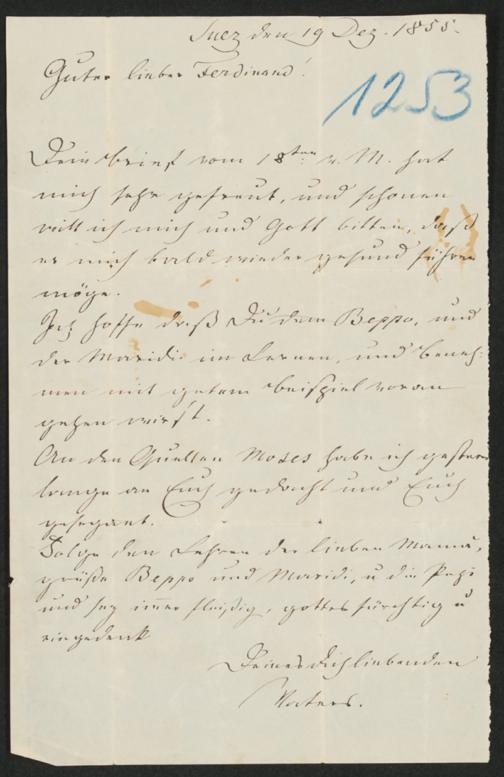 Suez den 19 Dez. 1855.
Guter lieber Ferdinand!
1253
Dein Brief vom 18ten v. M. hat
mich sehr gefreut, und schonen
will ich mich und Gott bitten, daß
er mich bald wieder gesund führen
möge.
Ich hoffe daß Du dem Beppo, und
der Maridi im Lernen, und Beneh-
men mit gutem Beispiel voran
gehen wirst.
An den Quellen Moses habe ich gestern
lange an Euch gedacht und Euch
gesegnet.
Folge den Lehren der lieben Mama,
grüße Beppo und Maridi, u die Pepi
und sey immer fleißig, gottesfürchtig u
eingedenk
Deines dich liebenden
Vaters.